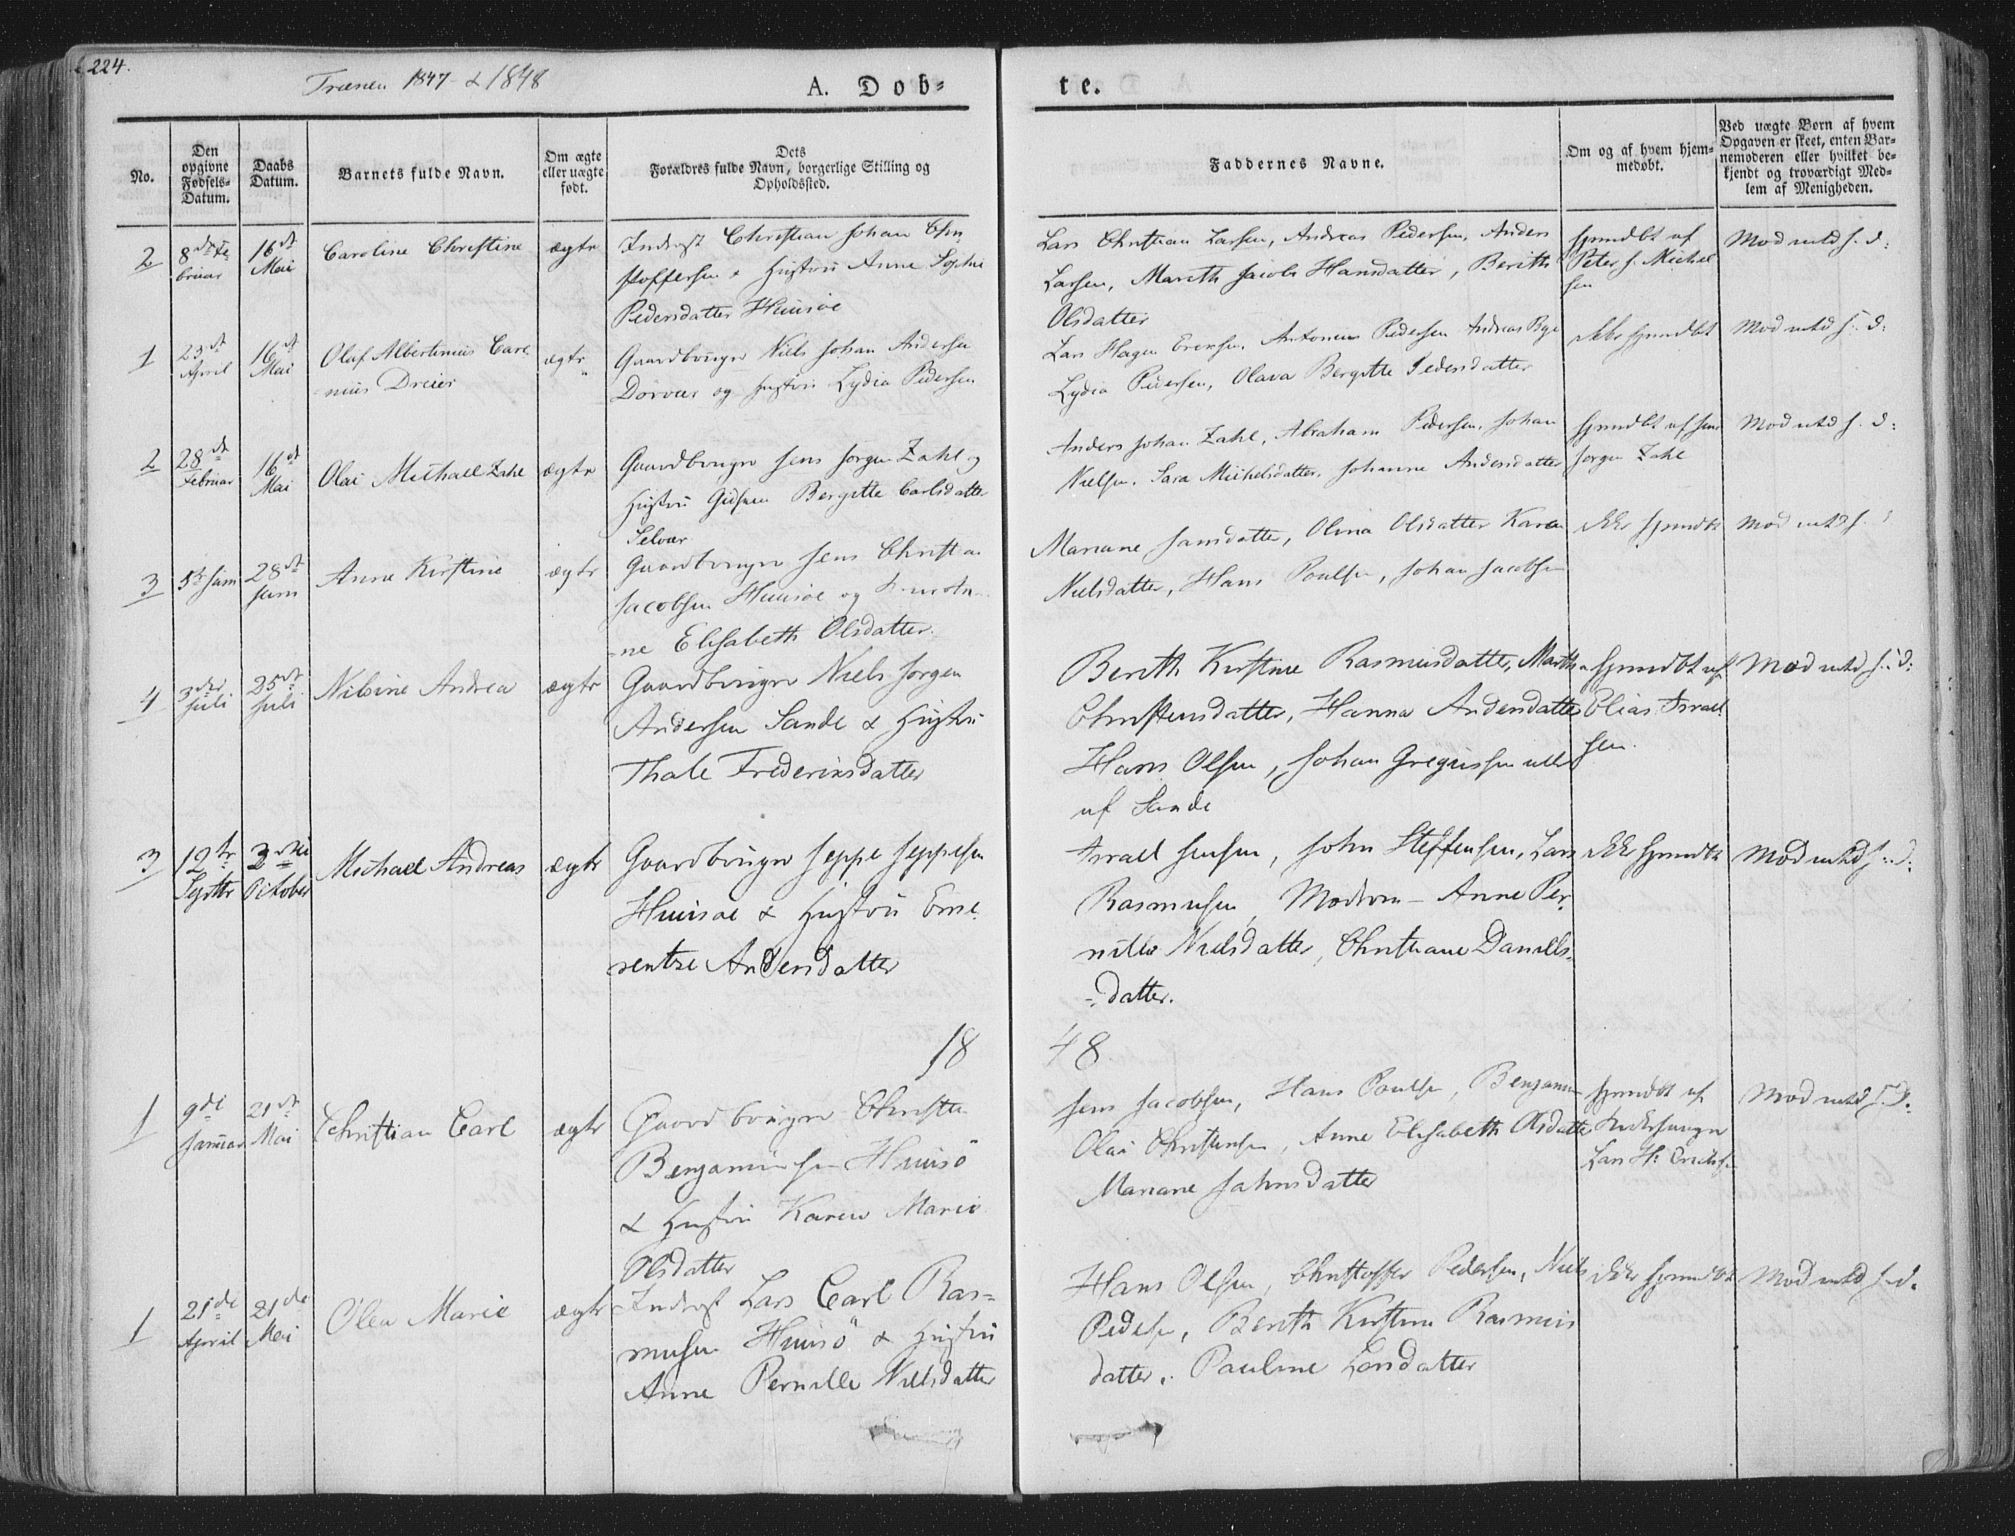 224.
Trænen 1847 & 1848
A. Dob-
te.
No.
Den opgivne Fødsels-Datum.
Daabs Datum.
Barnets fulde Navn.
Om ægte eller uægte født.
Dets Forældres fulde Navn, borgerlige Stilling og Opholdssted.
Faddernes Navne.
Om og af hvem hjem-medøbt.
Ved uægte Børn af hvem Opgaven er skeet, enten Bar-nemoderen eller hvilket be-kjendt og troværdigt Med-lem af Menigheden.
2
8de Fe
bruar
16de
Mai
Caroline Christine
ægte
Inderst Christian Johan Chri
stoffersen & Hustru Anne Sophie
Pedersdatter Huusøe
Lars Christian Larsen, Andreas Pedersen, Anders
Larsen, Mareth Jacob Hansdatter, Berith
Olsdatter
hjemdbt af
Peter J. Michel
sen
1
23de
April
16de
Mai
Olaf Albertinius Care
nius Dreier
ægte
Gaardbruger Niels Johan Andersen
Dørvær og Hustru Lydia Pedersen
Lars Hagen Erensen, Antonius Pedersen Andreas
Lydia Pedersen, Olava Bergitte Pedersdatter
ikke hjemdbt
2
28de
Februar
16de
Mai
Olai Michael Zahl
ægte
Gaardbruger Jens Jørgen Zahl og
Hustru Bergitte Carlsdatter
Selvær
Anders Johan Zahl, Abraham Pedersen, Johan
Nielsen, Sara Michelsdatter, Johanne Andersdatter
hjemdbt af Jens
Jørgen Zahl
3
5te Juni
28de
Juni
Anne Kirstine
ægte
Gaardbruger Jens Christian
Jacobsen Huusøe og
ne Elisabeth Olsdatter
Mariane Jansdatter, Olina Olsdatter Karen
Nielsdatter, Hans Poulsen, Johan Jacobsen
ikke hjemdbt
4
3die
Juli
25de
Juli
Nilsine Andrea
ægte
Gaardbruger Niels Jørgen
Andersen Sande & Hustru
Thale Frederiksdatter
Berith Kirstine Rasmusdatter, Marth
Christensdatter, Hanna Andersdatter
Hans Olsen, Johan Gregusen alle
af Sande
hjemdbt af
Elias Israel
sen.
3
12te
Septbr
3die
October
Michael Andreas
ægte
Gaardbruger Jeppe Jeppesen
Huusøe & Hustru Eme
rentze Andersdatter
Israel Jensen, John Steffensen, Lars
Rasmusen, Moderen – Anne Per
nille Nielsdatter, Christiane Daniels
datter.
ikke hjemdbt
18
48
1
9de
Januar
21de
Mai
Christian Carl
ægte
Gaardbruger Christen
Benjaminsen Huusö
& Hustru Karen Marie
Olsdatter
Jens Jacobsen, Hans Poulsen, Benjamin
Olai Christensen, Anne Elisabeth Olsdatter
Mariane Jahnsdatter
hjemdbt af
Lars Hs Eriksen
1
21de
April
21de
Mai
Olea Marie
ægte
Inderst Lars Carl Ras-
musen Huusö & Hustru
Anne Pernille Nielsdatter
Hans Olsen, Christoffer Pedersen, Niels
Pedersen, Berith Kirstine Rasmus
datter, Pauline Larsdatter
ikke hjemdbt